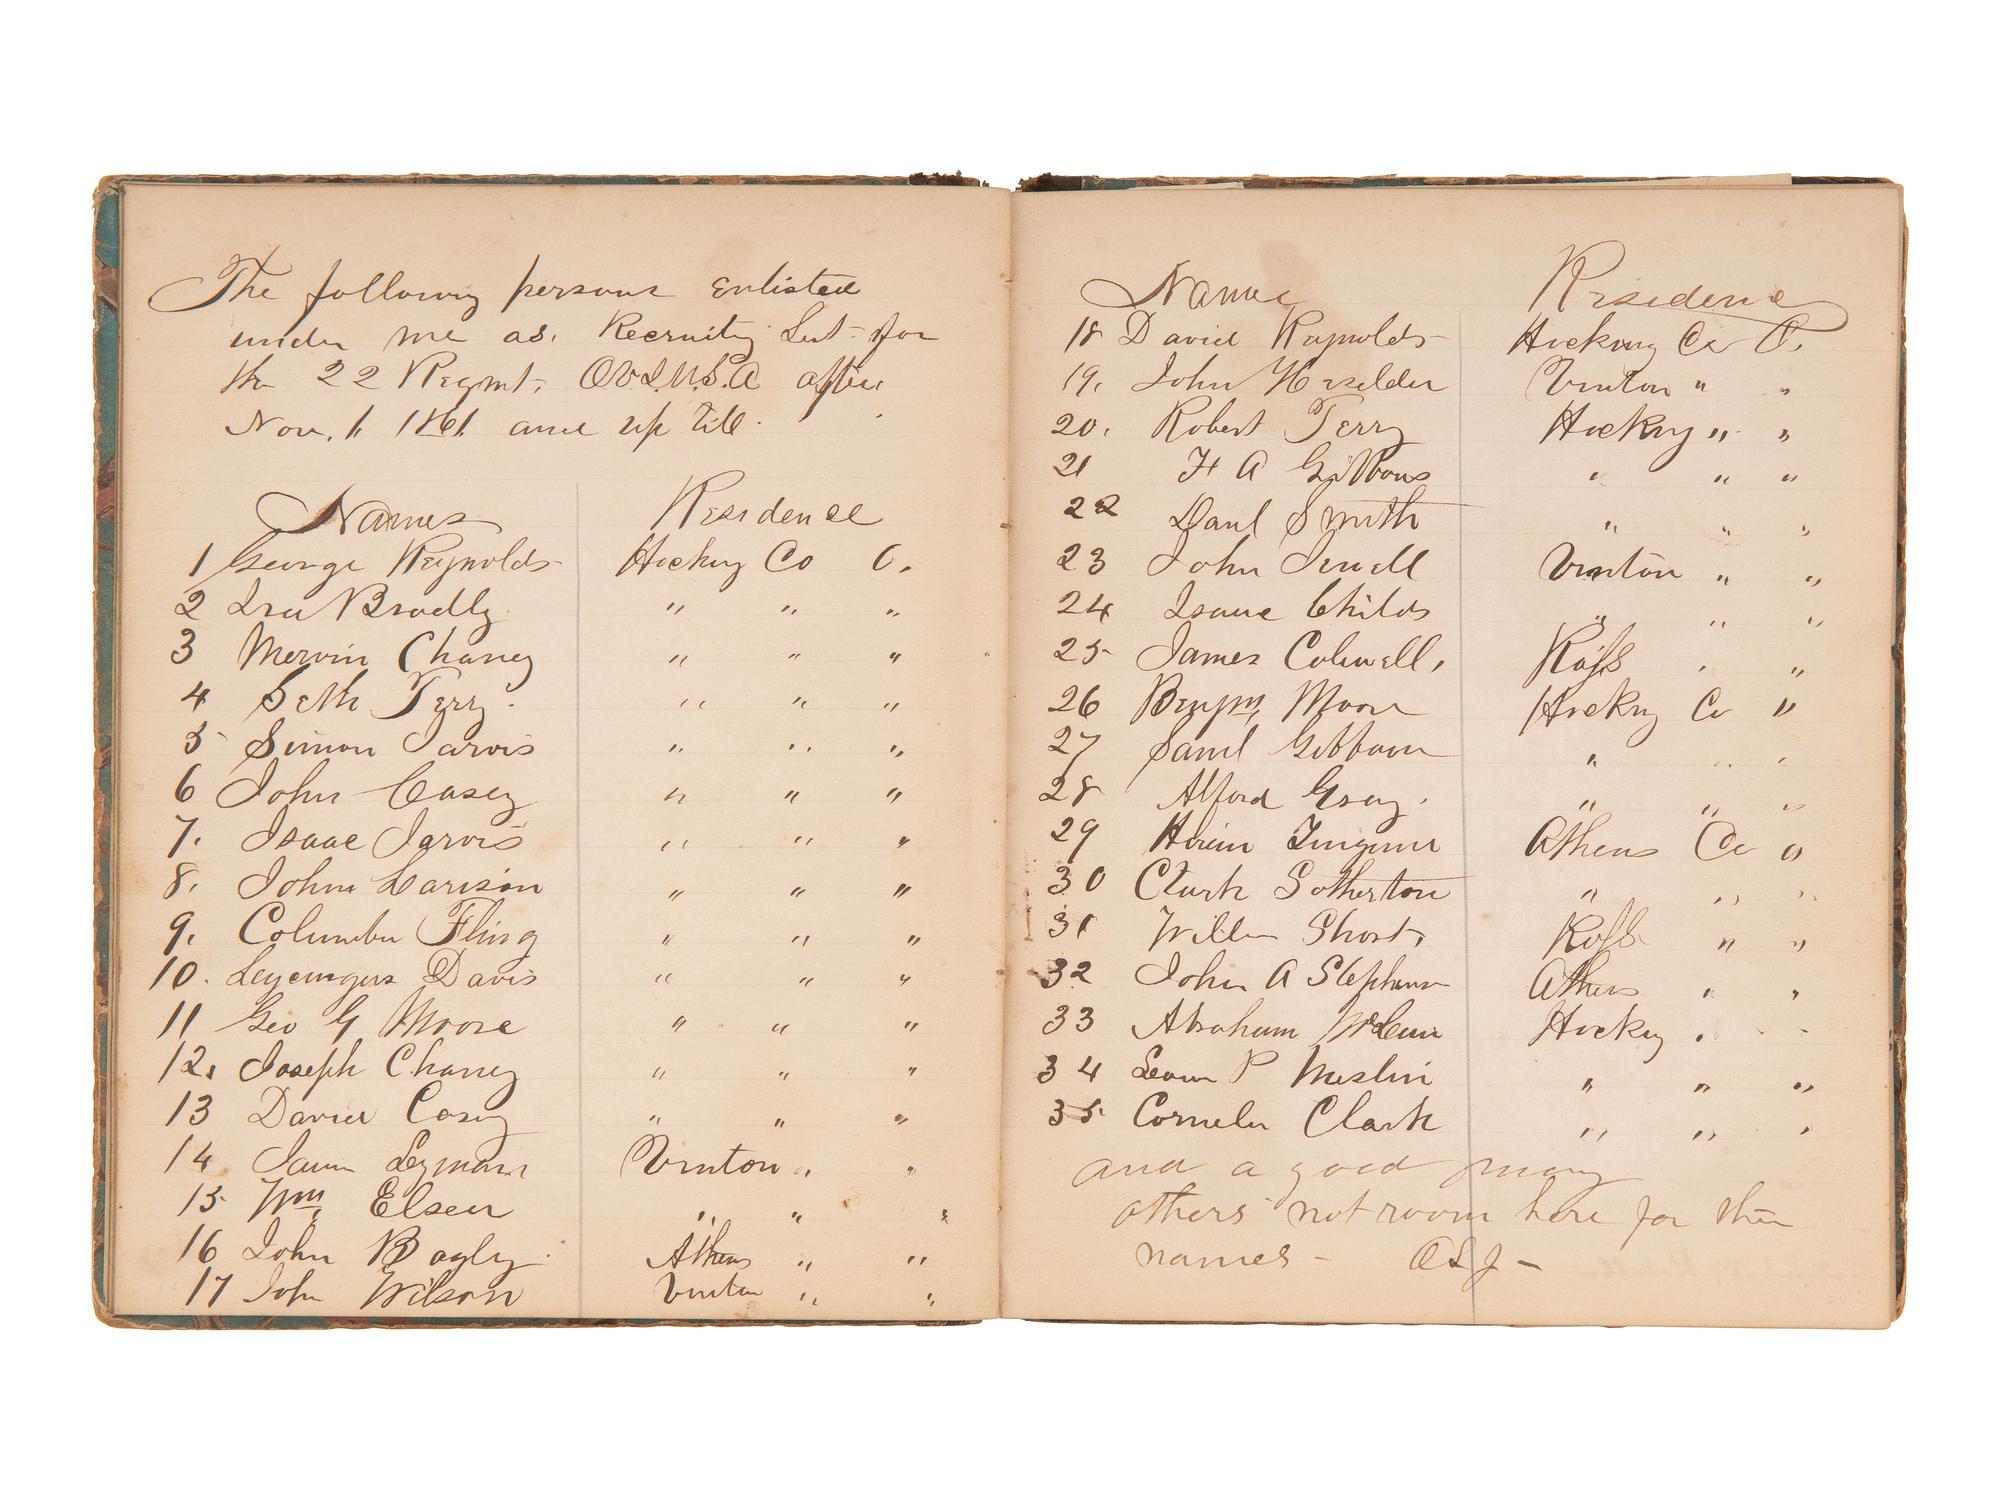 The following persons enlisted
under me as. Recruiting Lut for
the 22 Regmt. OVI.U.S.A after
Nov. 1. 1861 and up till
Names Residence
1 George Reynolds Hocking Co O.
2 Ira Bradly " " "
3 Mervin Chaney " " "
4 Seth Terry. " " "
5 Simon Jarvis " " "
6 John Casey " " "
7. Isaac Jarvis " " "
8. John Larison " " "
9. Columbu Fling " " "
10. Davis " " "
11 Geo G Moore " " "
12. Joseph Chaney " " "
13 David Casey " " "
14 Lyman Vinton " "
15 Wm, Elsen " " "
16 John Bagly. Athens " "
17 John Wilson Vinton " "
Names Residence
18 David Reynolds Hocking Co O.
19. John Haselden Vinton " "
20. Robert Terry Hocking " "
21 H A Gibbons " " "
22 Danl Smith " " "
23 John Jewell Vinton " "
24 Isaac Childs " " "
25 James Colwell, Ross " "
26 Benjm, Moore Hocking Co "
27 Saml Gibbons " " "
28 Alford Gray. " " "
29 Hiram Athens Co "
30 Clark Sotherton " " "
31 Short, Ross " "
32 John A Stephens Athens " "
33 Abraham McLain Hocking " "
34 P Meslin " " "
35 Cornelu Clark " " "
and a good many
others not room here for their
names - OSJ -